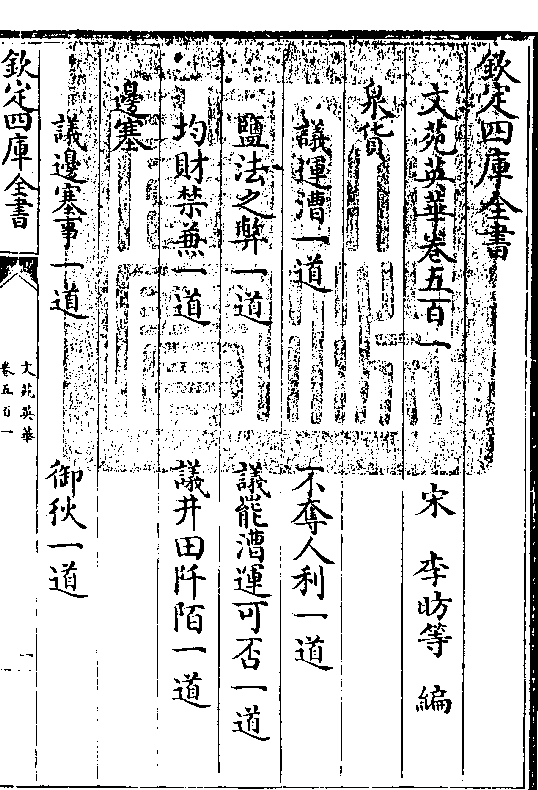 欽定四庫全書
文苑英華卷五百一
宋 李昉等 編
泉貨
議運漕一道 不奪人利一道
鹽法之弊一道 議罷漕運可否一道
均財禁兼一道 議井田阡陌一道
邊塞
議邊塞事一道 御狄一道
欽定四庫全書
文苑英華
卷五百一
一